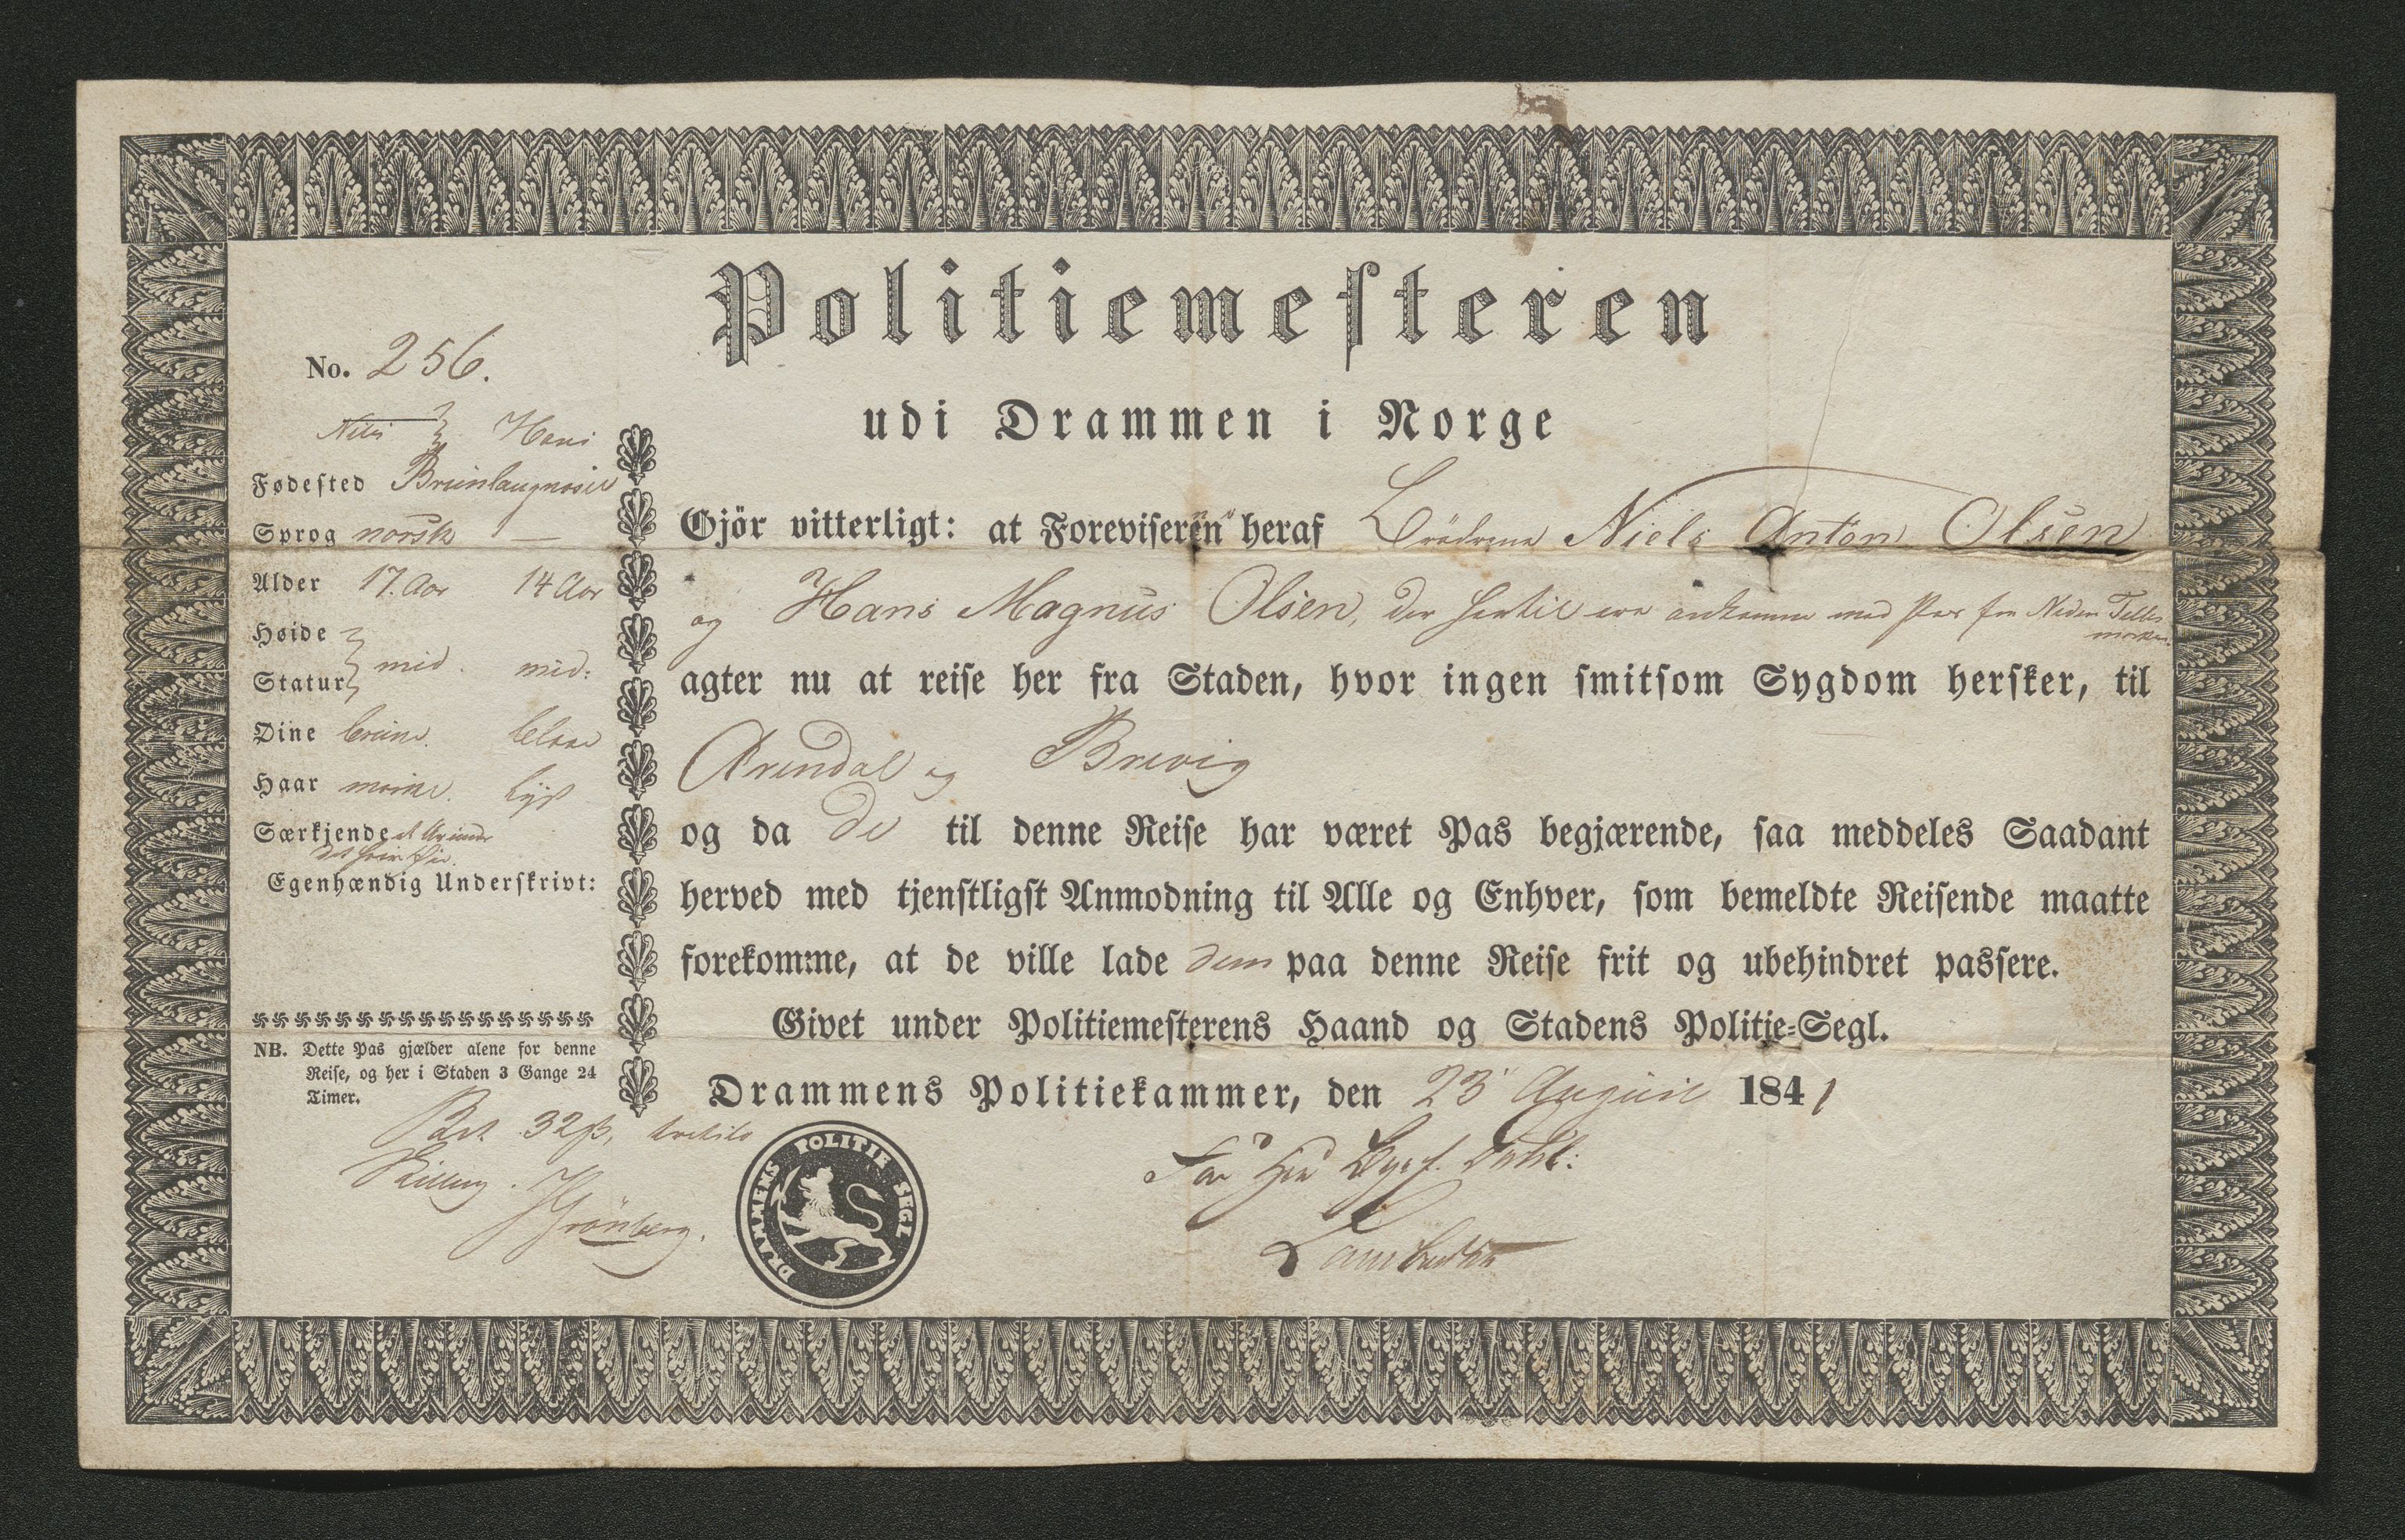 Politiemesteren
udi Drammen i Norge
No. 256.
Niels Hans
Fødested Brunlaugnæsset
Sprog norsk —
Alder 17. Aar 14 Aar
Høide
Statur mid. mid:
Øine brune. blaae
Haar mørke. lyst
Særkjende
Egenhændig Underskrivt:
NB. Dette Pas gjælder alene for denne
Reise, og her i Staden 3 Gange 24
Timer.
Bet. 32ß,
Skilling.
Grönberg.
Gjör vitterligt: at Foreviseren heraf Brödrene Niels Anton Olsen
og Hans Magnus Olsen, der hertil ere ankomne med Pas fra Neden Telle
marken
agter nu at reise her fra Staden, hvor ingen smitsom Sygdom hersker, til
Arendal og Brevig
og da de til denne Reise har været Pas begjærende, saa meddeles Saadant
herved med tjenstligst Anmodning til Alle og Enhver, som bemeldte Reisende maatte
forekomme, at de ville lade dem paa denne Reise frit og ubehindret passere.
Givet under Politiemesterens Haand og Stadens Politie-Segl.
Drammens Politiekammer, den 23 August 1841
DRAMMENS POLITIE SEGL